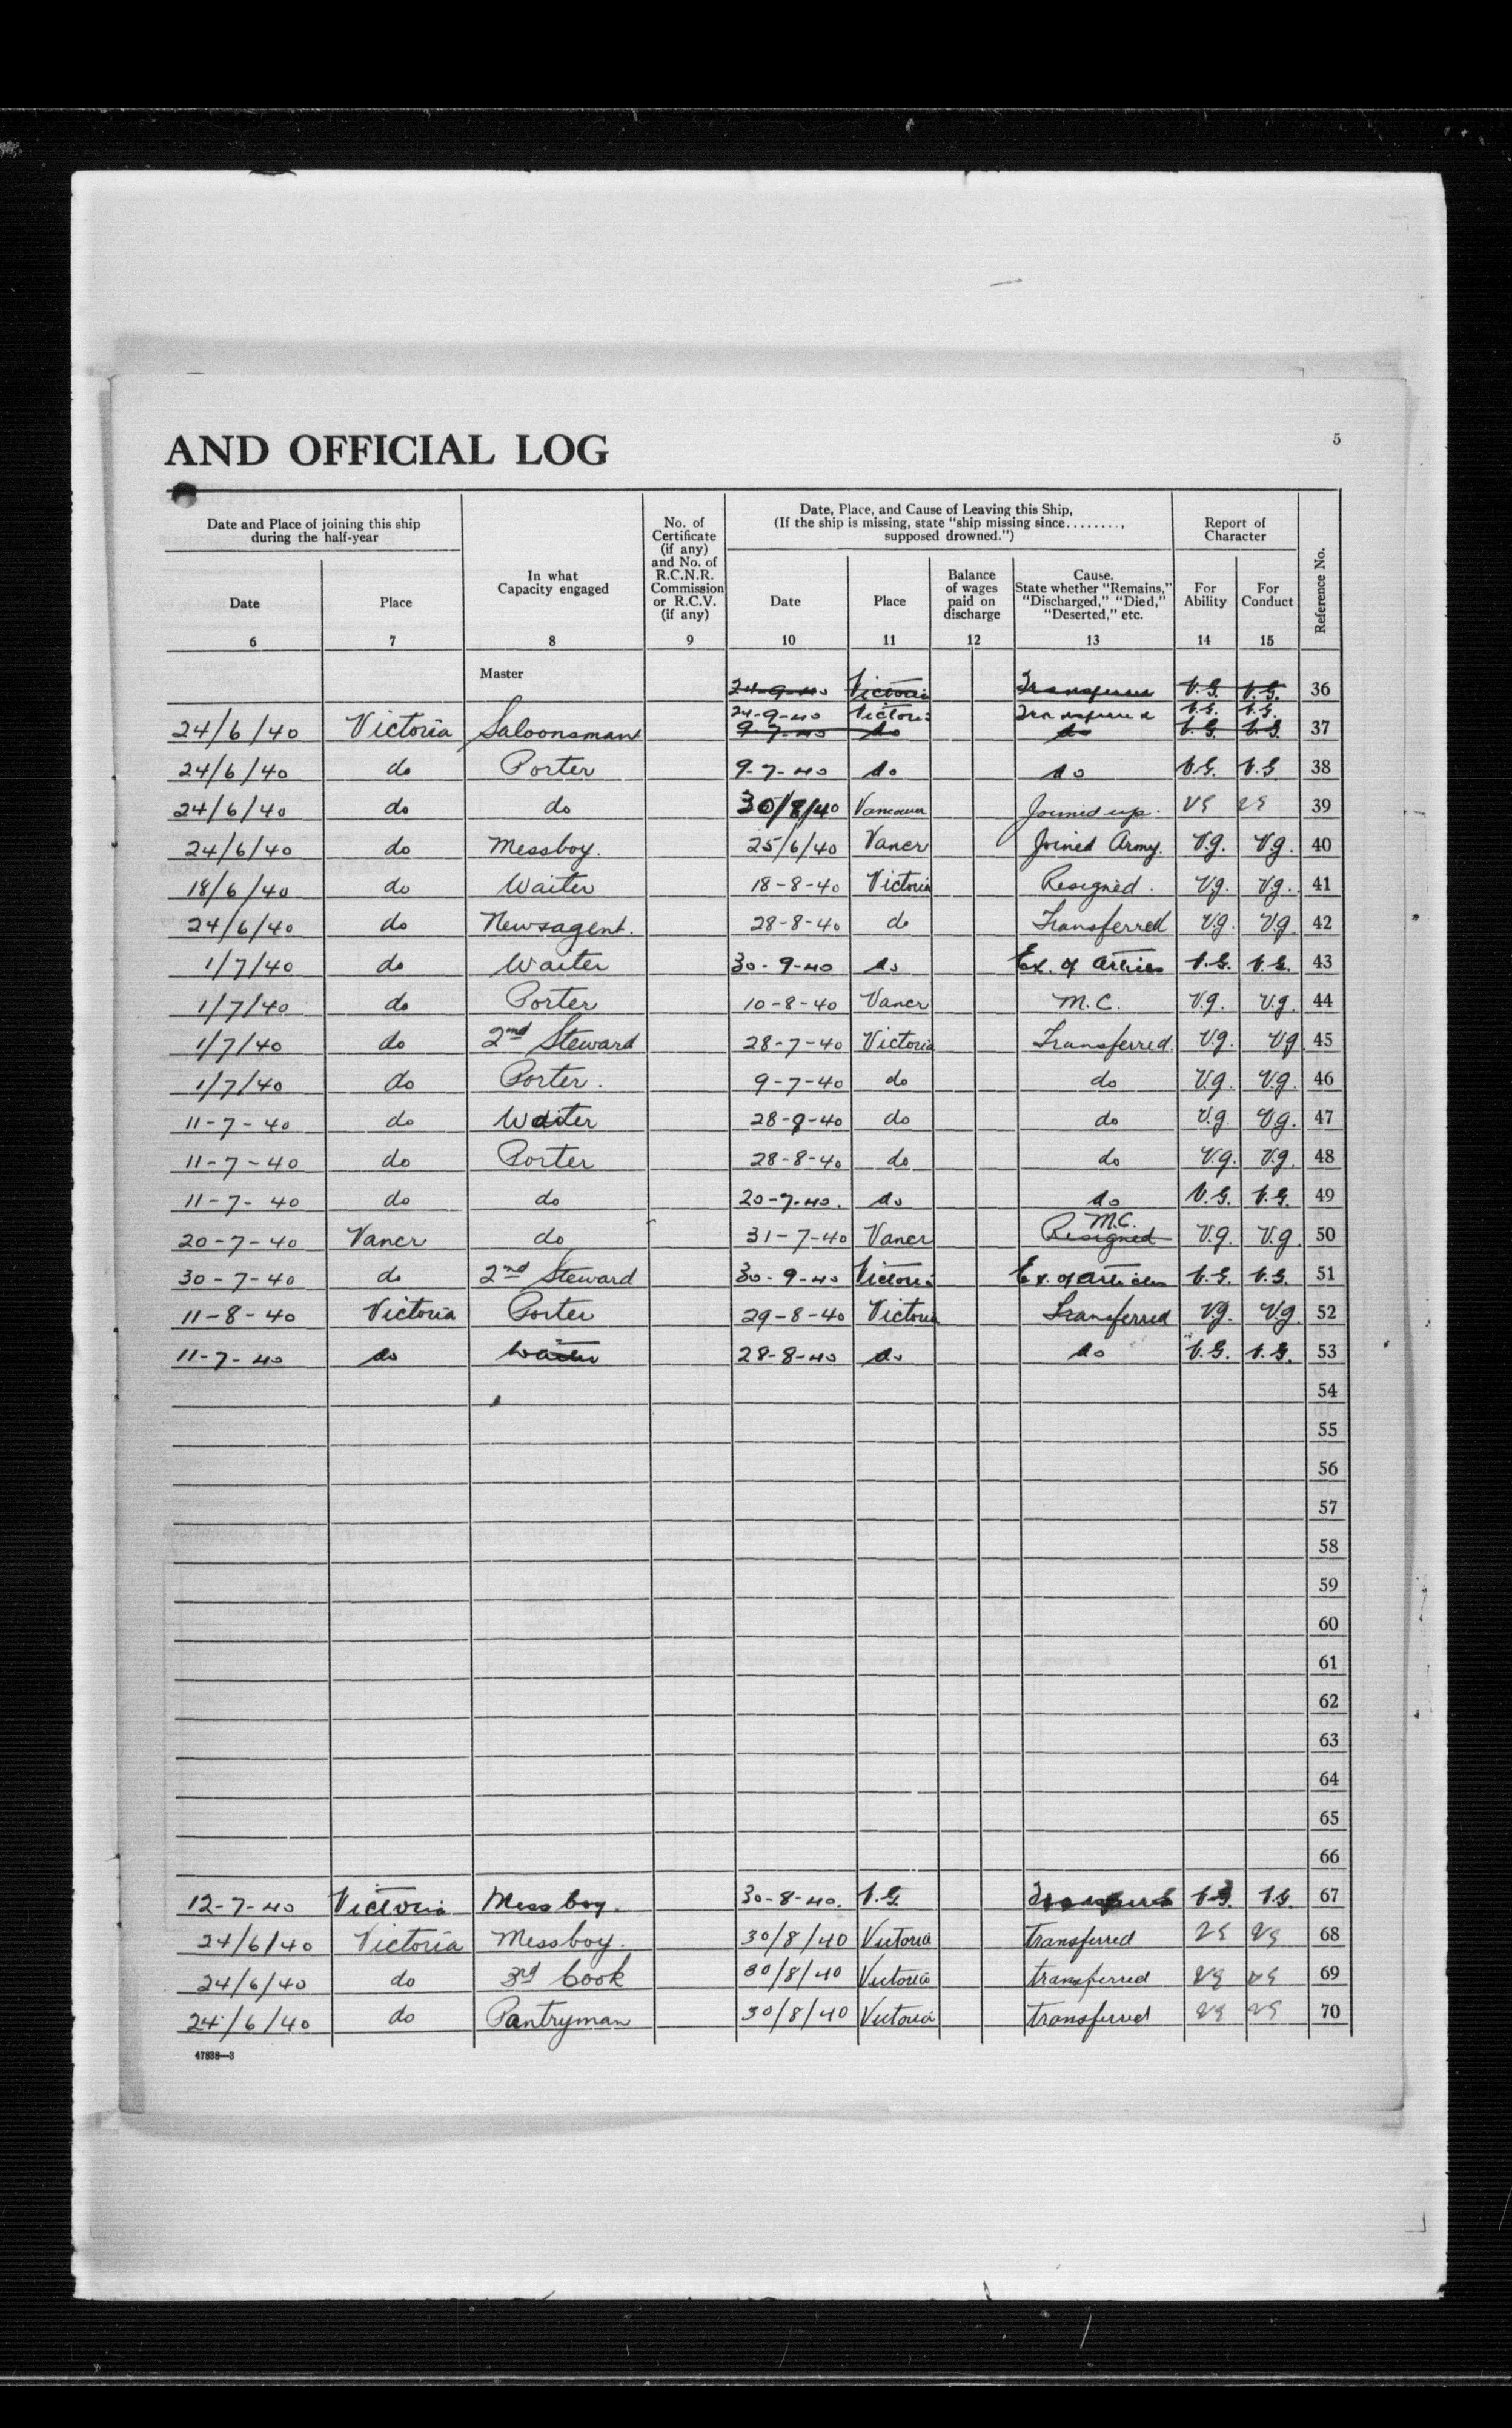 AND OFFICIAL LOG
5
Date and Place of joining this ship
during the half-year
In what
Capacity engaged
No. of
Certificate
(if any)
and No. of
R.C.N.R.
Commission
or R.C.V.
(if any)
Date, Place, and Cause of Leaving this Ship,
(If the ship is missing, state "ship missing since........,
supposed drowned.")
Report of
Character
Reference No.
Date
Place
Date
Place
Balance
of wages
paid on
discharge
Cause.
State whether "Remains,"
"Discharged," "Died,"
"Deserted," etc.
For
Ability
For
Conduct
6 7 8 9 10 11 12 13 14 15
Master 24-9-40 Victoria Transferred V.G. V.G. 36
24-9-40 Victoria Transferred V.G. V.G.
24/6/40 Victoria Saloonsman 9-7-40 do do V.G. V.G. 37
24/6/40 do Porter 9-7-40 do do V.G. V.G. 38
24/6/40 do do 30/8/40 Vancouver Joined up. VG VG 39
24/6/40 do Messboy. 25/6/40 Vancr Joined Army. V.g. V.g. 40
18/6/40 do Waiter 18-8-40 Victoria Resigned. V.g. V.g. 41
24/6/40 do Newsagent. 28-8-40 do Transferred V.g. V.g. 42
1/7/40 do Waiter 30-9-40 do Ex. of Articles V.G. V.G. 43
1/7/40 do Porter 10-8-40 Vancr M.C. V.g. V.g. 44
1/7/40 do 2nd Steward 28-7-40 Victoria Transferred. V.g. Vg. 45
1/7/40 do Porter. 9-7-40 do do V.g. V.g. 46
11-7-40 do Waiter 28-9-40 do do V.g. V.g. 47
11-7-40 do Porter 28-8-40 do do V.g. V.g. 48
11-7-40 do do 20-7-40. do do V.G. V.G. 49
M.C.
20-7-40 Vancr do 31-7-40 Vancr Resigned V.g. V.g. 50
30-7-40 do 2nd Steward 30-9-40 Victoria Ex. of Articles V.G. V.G. 51
11-8-40 Victoria Porter 29-8-40 Victoria Transferred V.g. V.g. 52
11-7-40 do Waiter 28-8-40 do do V.G. V.G. 53
54
55
56
57
58
59
60
61
62
63
64
65
66
12-7-40 Victoria Mess boy. 30-8-40. V.G. Transferred V.G. V.G. 67
24/6/40 Victoria Messboy. 30/8/40 Victoria transferred VG VG 68
24/6/40 do 3rd Cook 30/8/40 Victoria transferred VG VG 69
24/6/40 do Pantryman 30/8/40 Victoria transferred VG VG 70
47838—3